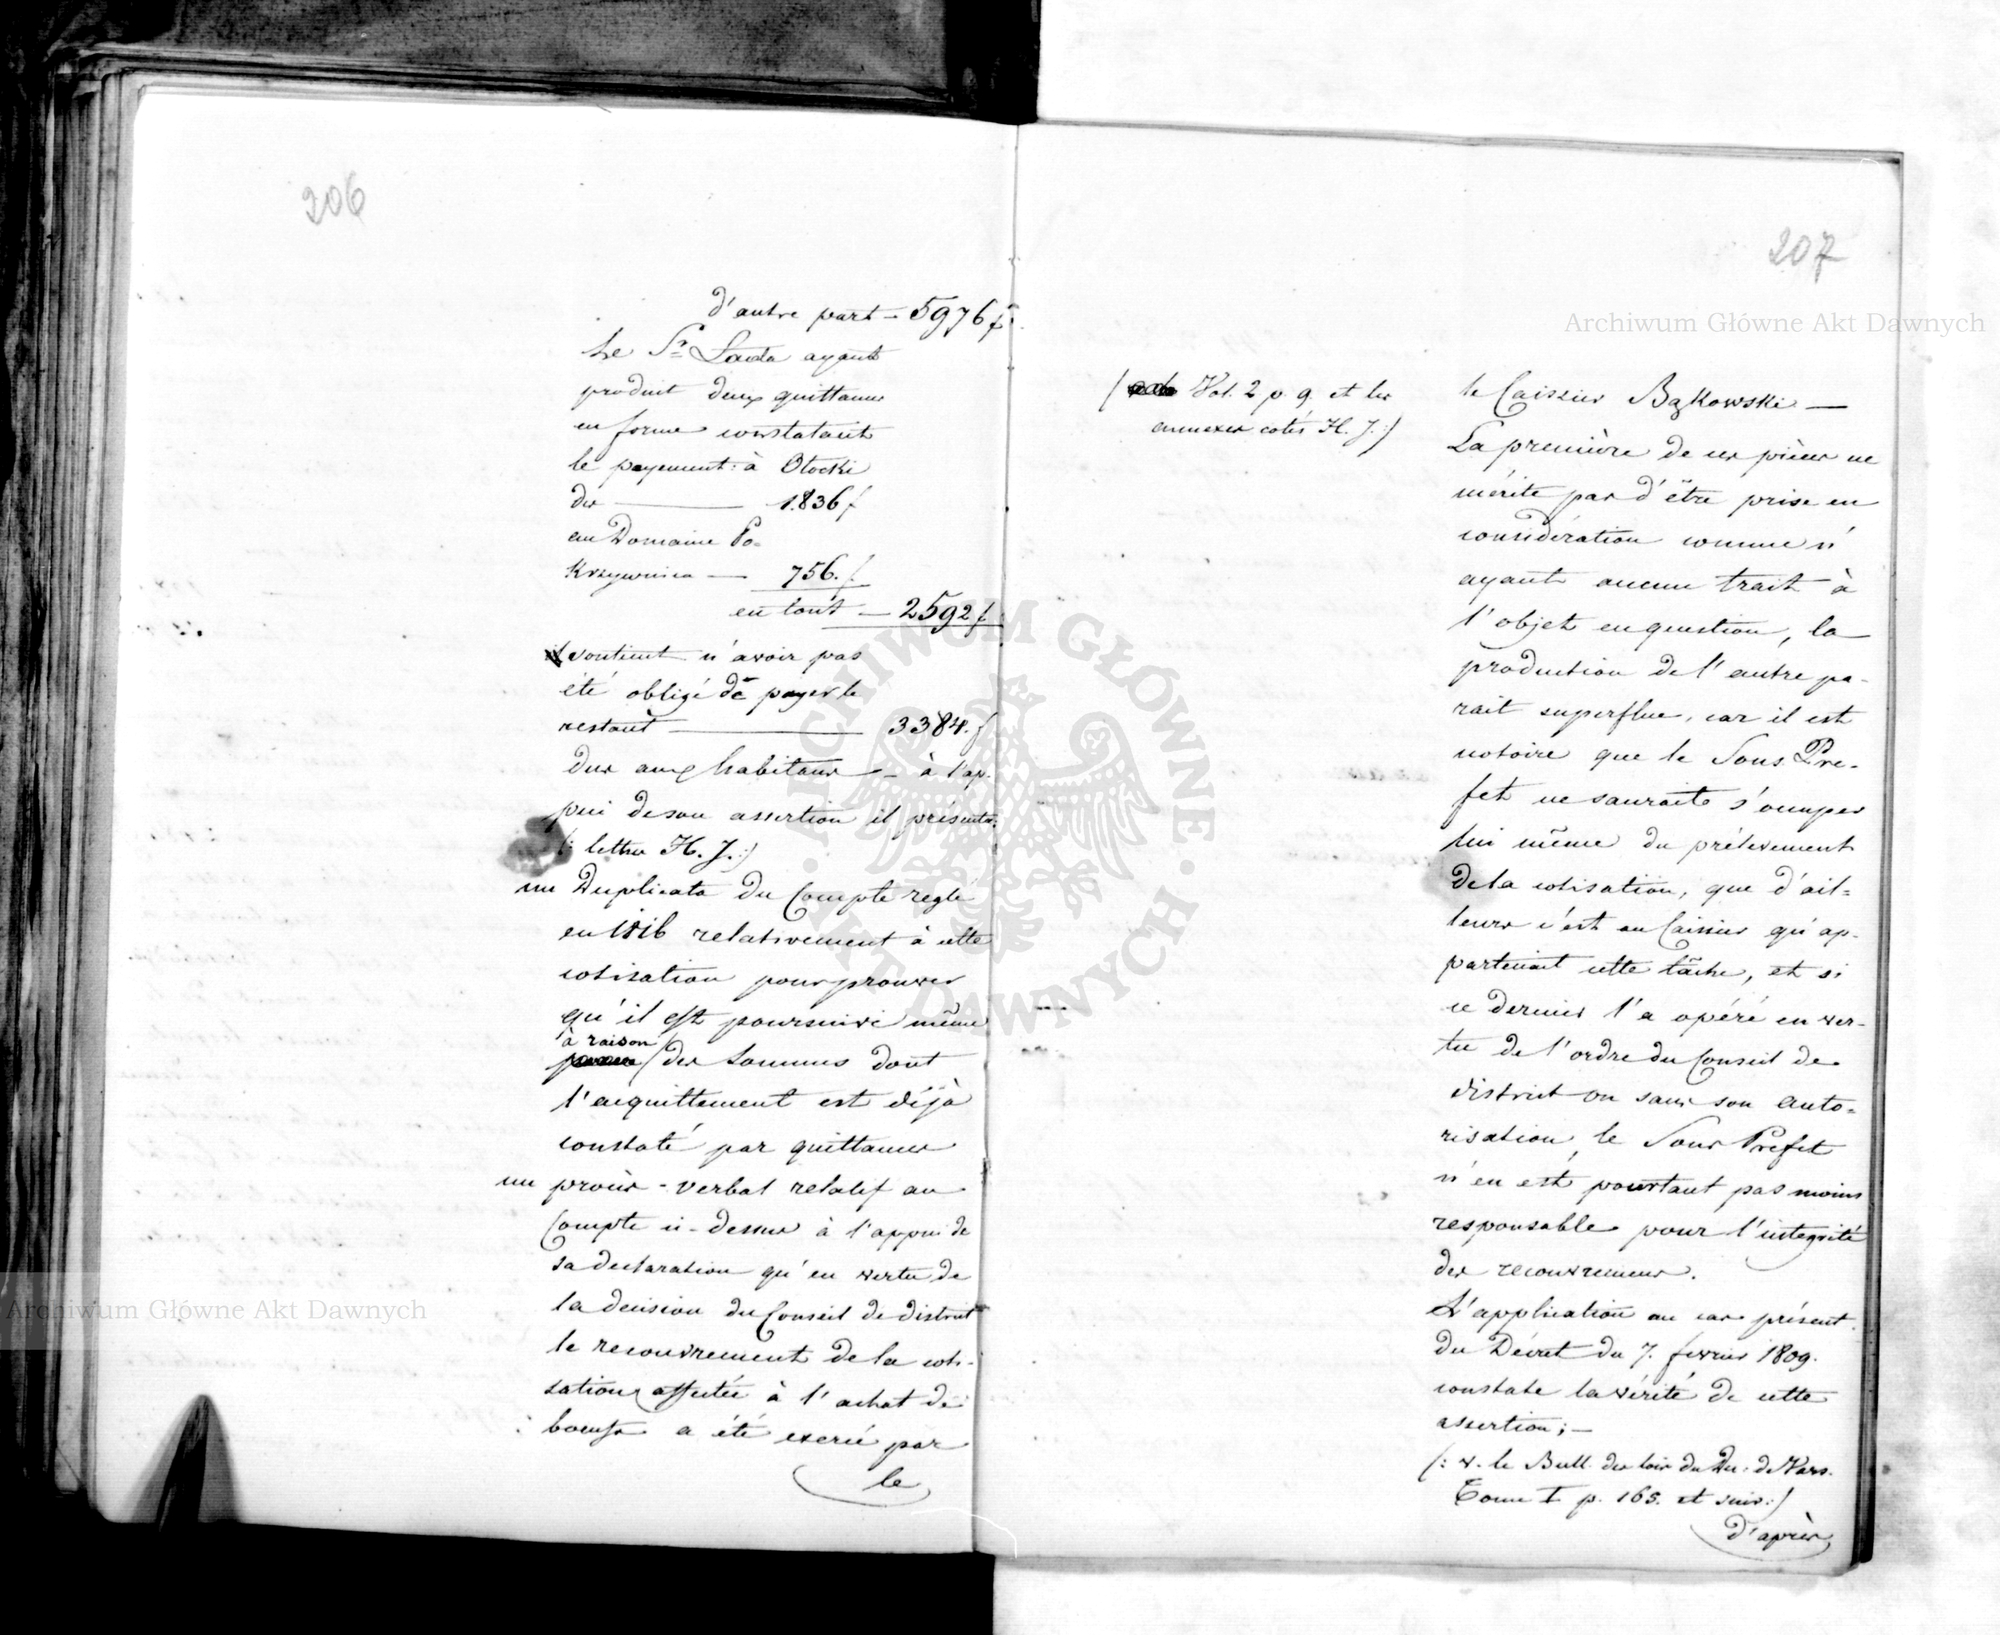 206
d'autre part — 5976 f
Le Sr. Lada ayant
produit deux quittances
en forme constatant
le payement: à Otocki
des — 1.836 f
au Domaine Po-
krzywnica — 756. f
en tout — 2592 f
il soutient n'avoir pas
été obligé de payer le
restant — 3384. f
dus aux habitans — à l'ap-
pui de son assertion il présente:
(: lettres H. J.:)
un Duplicata du Compte reglé
en 1816 relativement à cette
cotisation pour prouver
qu'il est poursuivi même
à raison
des sommes dont
l'acquittement est déjà
constaté par quittances
un procès-verbal relatif au
Compte ci-dessus à l'appui de
sa declaration qu'en vertu de
la decision du Conseil de district
le recouvrement de la coti-
sation affectée à l'achat de
boeufs a été exercé par
le
207
Archiwum Główne Akt Dawnych
(: Vol. 2 p. 9. et les
annexes cotés H. J.:)
le Caissier Bąkowski —
La première de ces pièces ne
mérite pas d'être prise en
considération comme n'
ayant aucun trait à
l'objet en question, la
production de l'autre pa-
rait superflue, car il est
notoire que le Sous Pre-
fet ne saurait s'occuper
lui même du prélevement
de la cotisation, que d'ail-
leurs c'est au Caissier qu'ap-
partenait cette tâche, et si
ce dernier l'a opéré en ver-
tu de l'ordre du Conseil de
district ou sans son auto-
risation, le Sous Prefet
n'en est pourtant pas moins
responsable pour l'integrité
des recouvremens.
L'application au cas présent
du Décret du 7. fevrier 1809.
constate la vérité de cette
assertion; —
(: v. le Bull. des loix du Du. de Vars.
Tome I p. 165. et suiv:)
d'après
Archiwum Główne Akt Dawnych
ARCHIWUM GŁÓWNE · AKT DAWNYCH ·